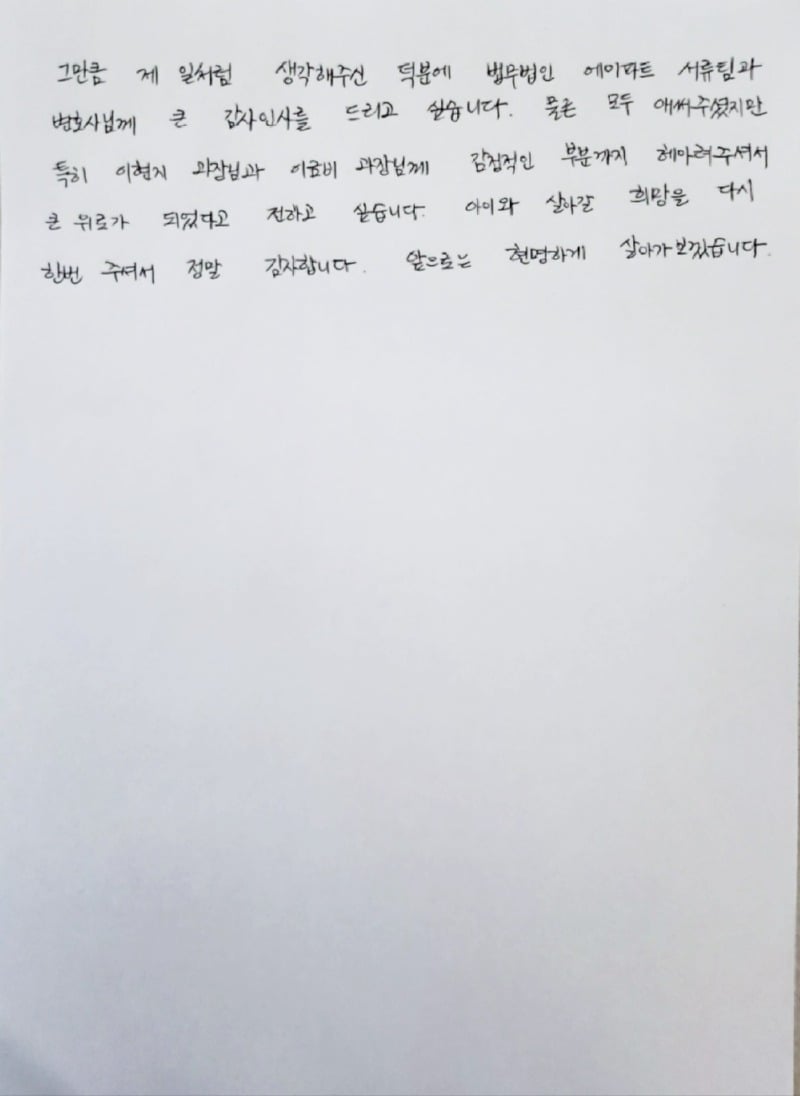 그만큼 제 일처럼 생각해주신 덕분에 법무법인 에이파트 서류팀과
변호사님께 큰 감사인사를 드리고 싶습니다. 물론 모두 애써주셨지만
특히 이현지 과장님과 이료비 과장님께 감정적인 부분까지 헤아려주셔서
큰 위로가 되었다고 전하고 싶습니다. 아이와 살아갈 희망을 다시
한번 주셔서 정말 감사합니다. 앞으로는 현명하게 살아가보겠습니다.